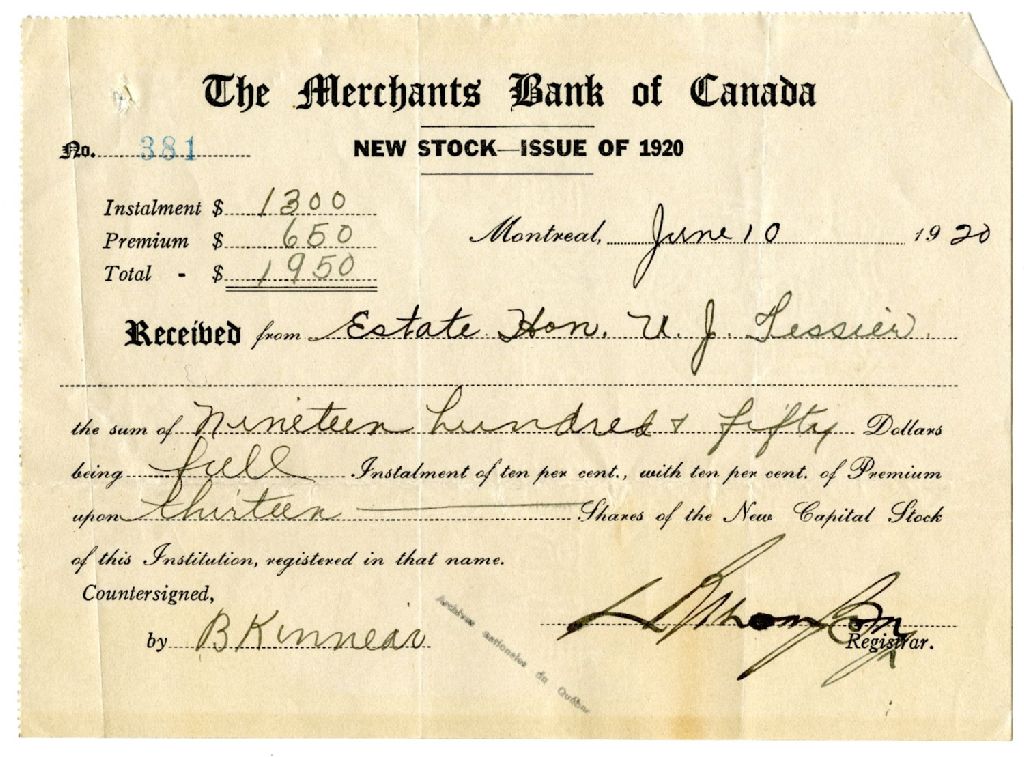 The Merchants Bank of Canada
No. 381
NEW STOCK—ISSUE OF 1920
Instalment $ 1300
Premium $ 650
Total - $ 1950
Montreal, June 10 1920
Received from Estate Hon. U. J. Tessier.
the sum of Nineteen hundred & fifty Dollars
being full Instalment of ten per cent., with ten per cent. of Premium
upon thirteen Shares of the New Capital Stock
of this Institution, registered in that name.
Countersigned,
by B Kinnear
Registrar.
Archives nationales du Québec